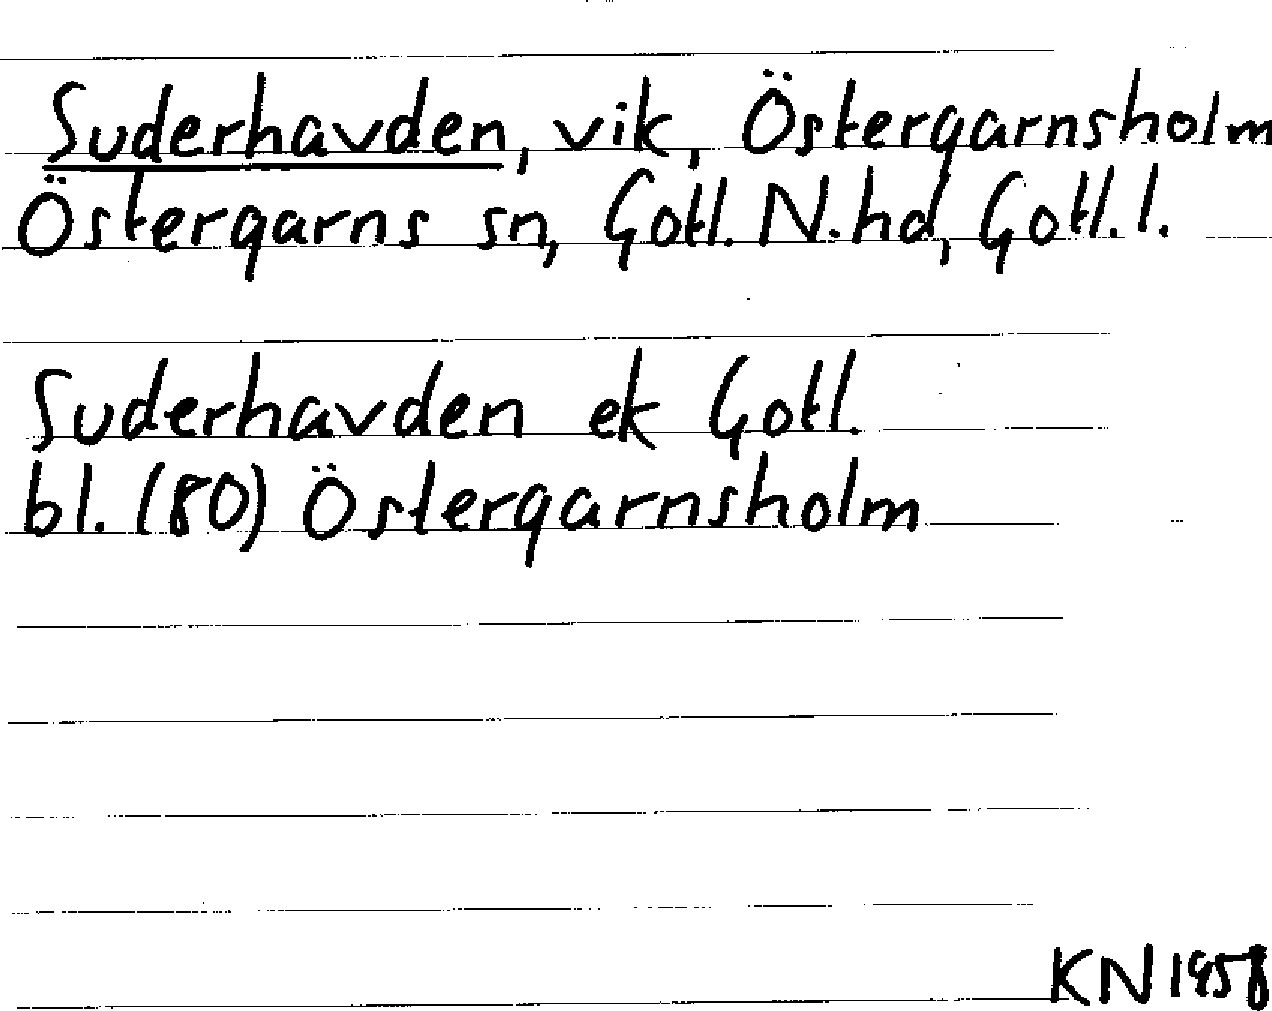 Suderhavden, vik, Östergarnsholm
Östergarns sn, Gotl. N. hd, Gotl. l.
Suderhavden ek Gotl.
bl. (80) Östergarnsholm
KN 1958